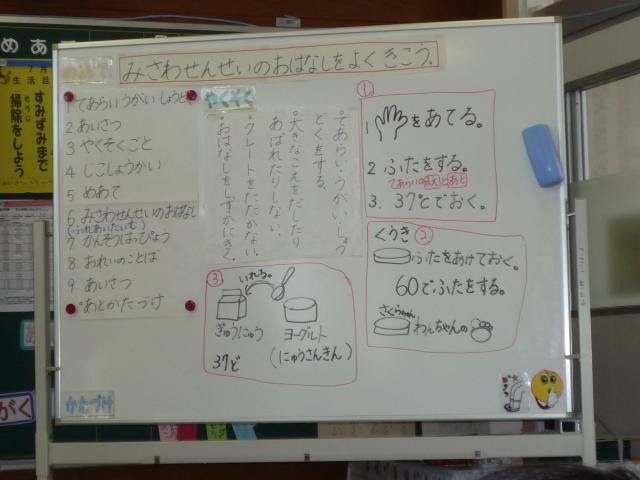 みさわせんせいのおはなしをよくきこう。
1 てあらいうがいしょうどく
2 あいさつ
3 やくそくごと
4 じこしょうかい
5. めあて
6. みさわせんせいのおはなし
(ふれあいたいむ)
7 かんそうはっぴょう
8 おれいのことば
9. あいさつ
・あとかたづけ
やくそく
・てあらい・うがい・しょう
どくをする。
・大きなこえをだしたり
あばれたりしない。
・クレートをたたかない。
・おはなしをしずかにきく。
①
1. をあてる。
2. ふたをする。
3. 37どでおく。
くうき ②
ふたをあけておく。
60でふたをする。
さくらちゃん
わんちゃんの
③
いれる。
ぎゅうにゅう
ヨーグルト
(にゅうさんきん)
37ど
かたづけ
めあ
7月
生活目
すみずみまで
掃除をしよう
がく